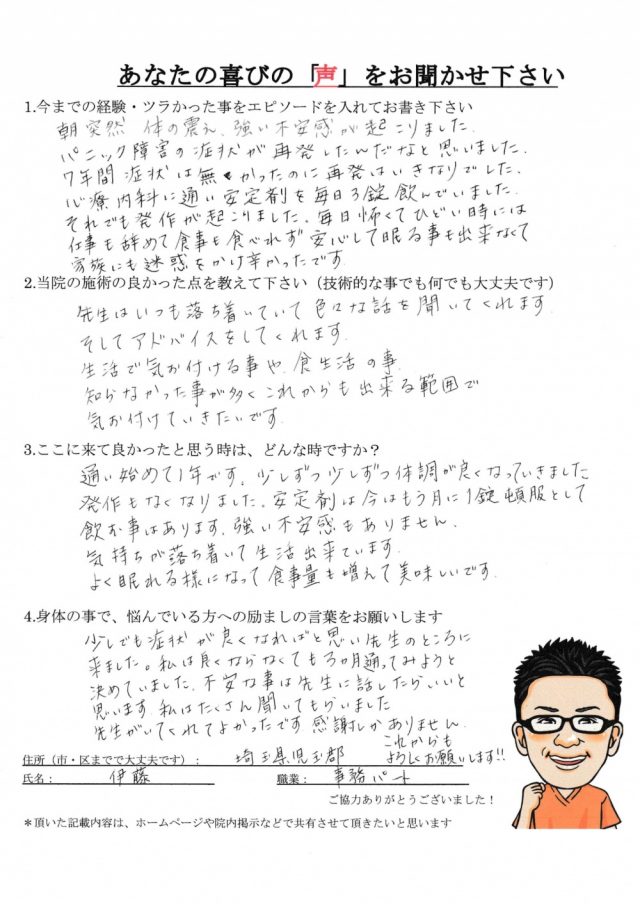 あなたの喜びの「声」をお聞かせ下さい
1.今までの経験・ツラかった事をエピソードを入れてお書き下さい
朝突然 体の震え、強い不安感が起こりました。
パニック障害の症状が再発したんだなと思いました。
7年間症状は無かったのに再発はいきなりでした。
心療内科に通い安定剤を毎日3錠飲んでいました。
それでも発作が起こりました。毎日怖くてひどい時には
仕事も辞めて食事も食べれず安心して眠る事も出来なくて
家族にも迷惑をかけ辛かったです
2.当院の施術の良かった点を教えて下さい（技術的な事でも何でも大丈夫です）
先生はいつも落ち着いていて色々な話を聞いてくれます。
そしてアドバイスをしてくれます。
生活で気お付ける事や、食生活の事、
知らなかった事が多くこれからも出来る範囲で
気お付けていきたいです。
3.ここに来て良かったと思う時は、どんな時ですか？
通い始めて1年です。少しずつ少しずつ体調が良くなっていきました
発作もなくなりました。安定剤は今はもう月に1錠頓服として
飲む事はあります。強い不安感もありません。
気持ちが落ち着いて生活出来ています。
よく眠れる様になって食事量も増えて美味しいです。
4.身体の事で、悩んでいる方への励ましの言葉をお願いします
少しでも症状が良くなればと思い先生のところに
来ました。私は良くならなくても3ヵ月通ってみようと
決めていました。不安な事は先生に話したらいいと
思います 私はたくさん聞いてもらいました
先生がいてくれてよかったです 感謝しかありません。
これからも
よろしくお願いします!!
住所（市・区までで大丈夫です）： 埼玉県児玉郡
氏名： 伊藤 職業： 事務パート
ご協力ありがとうございました！
＊頂いた記載内容は、ホームページや院内掲示などで共有させて頂きたいと思います